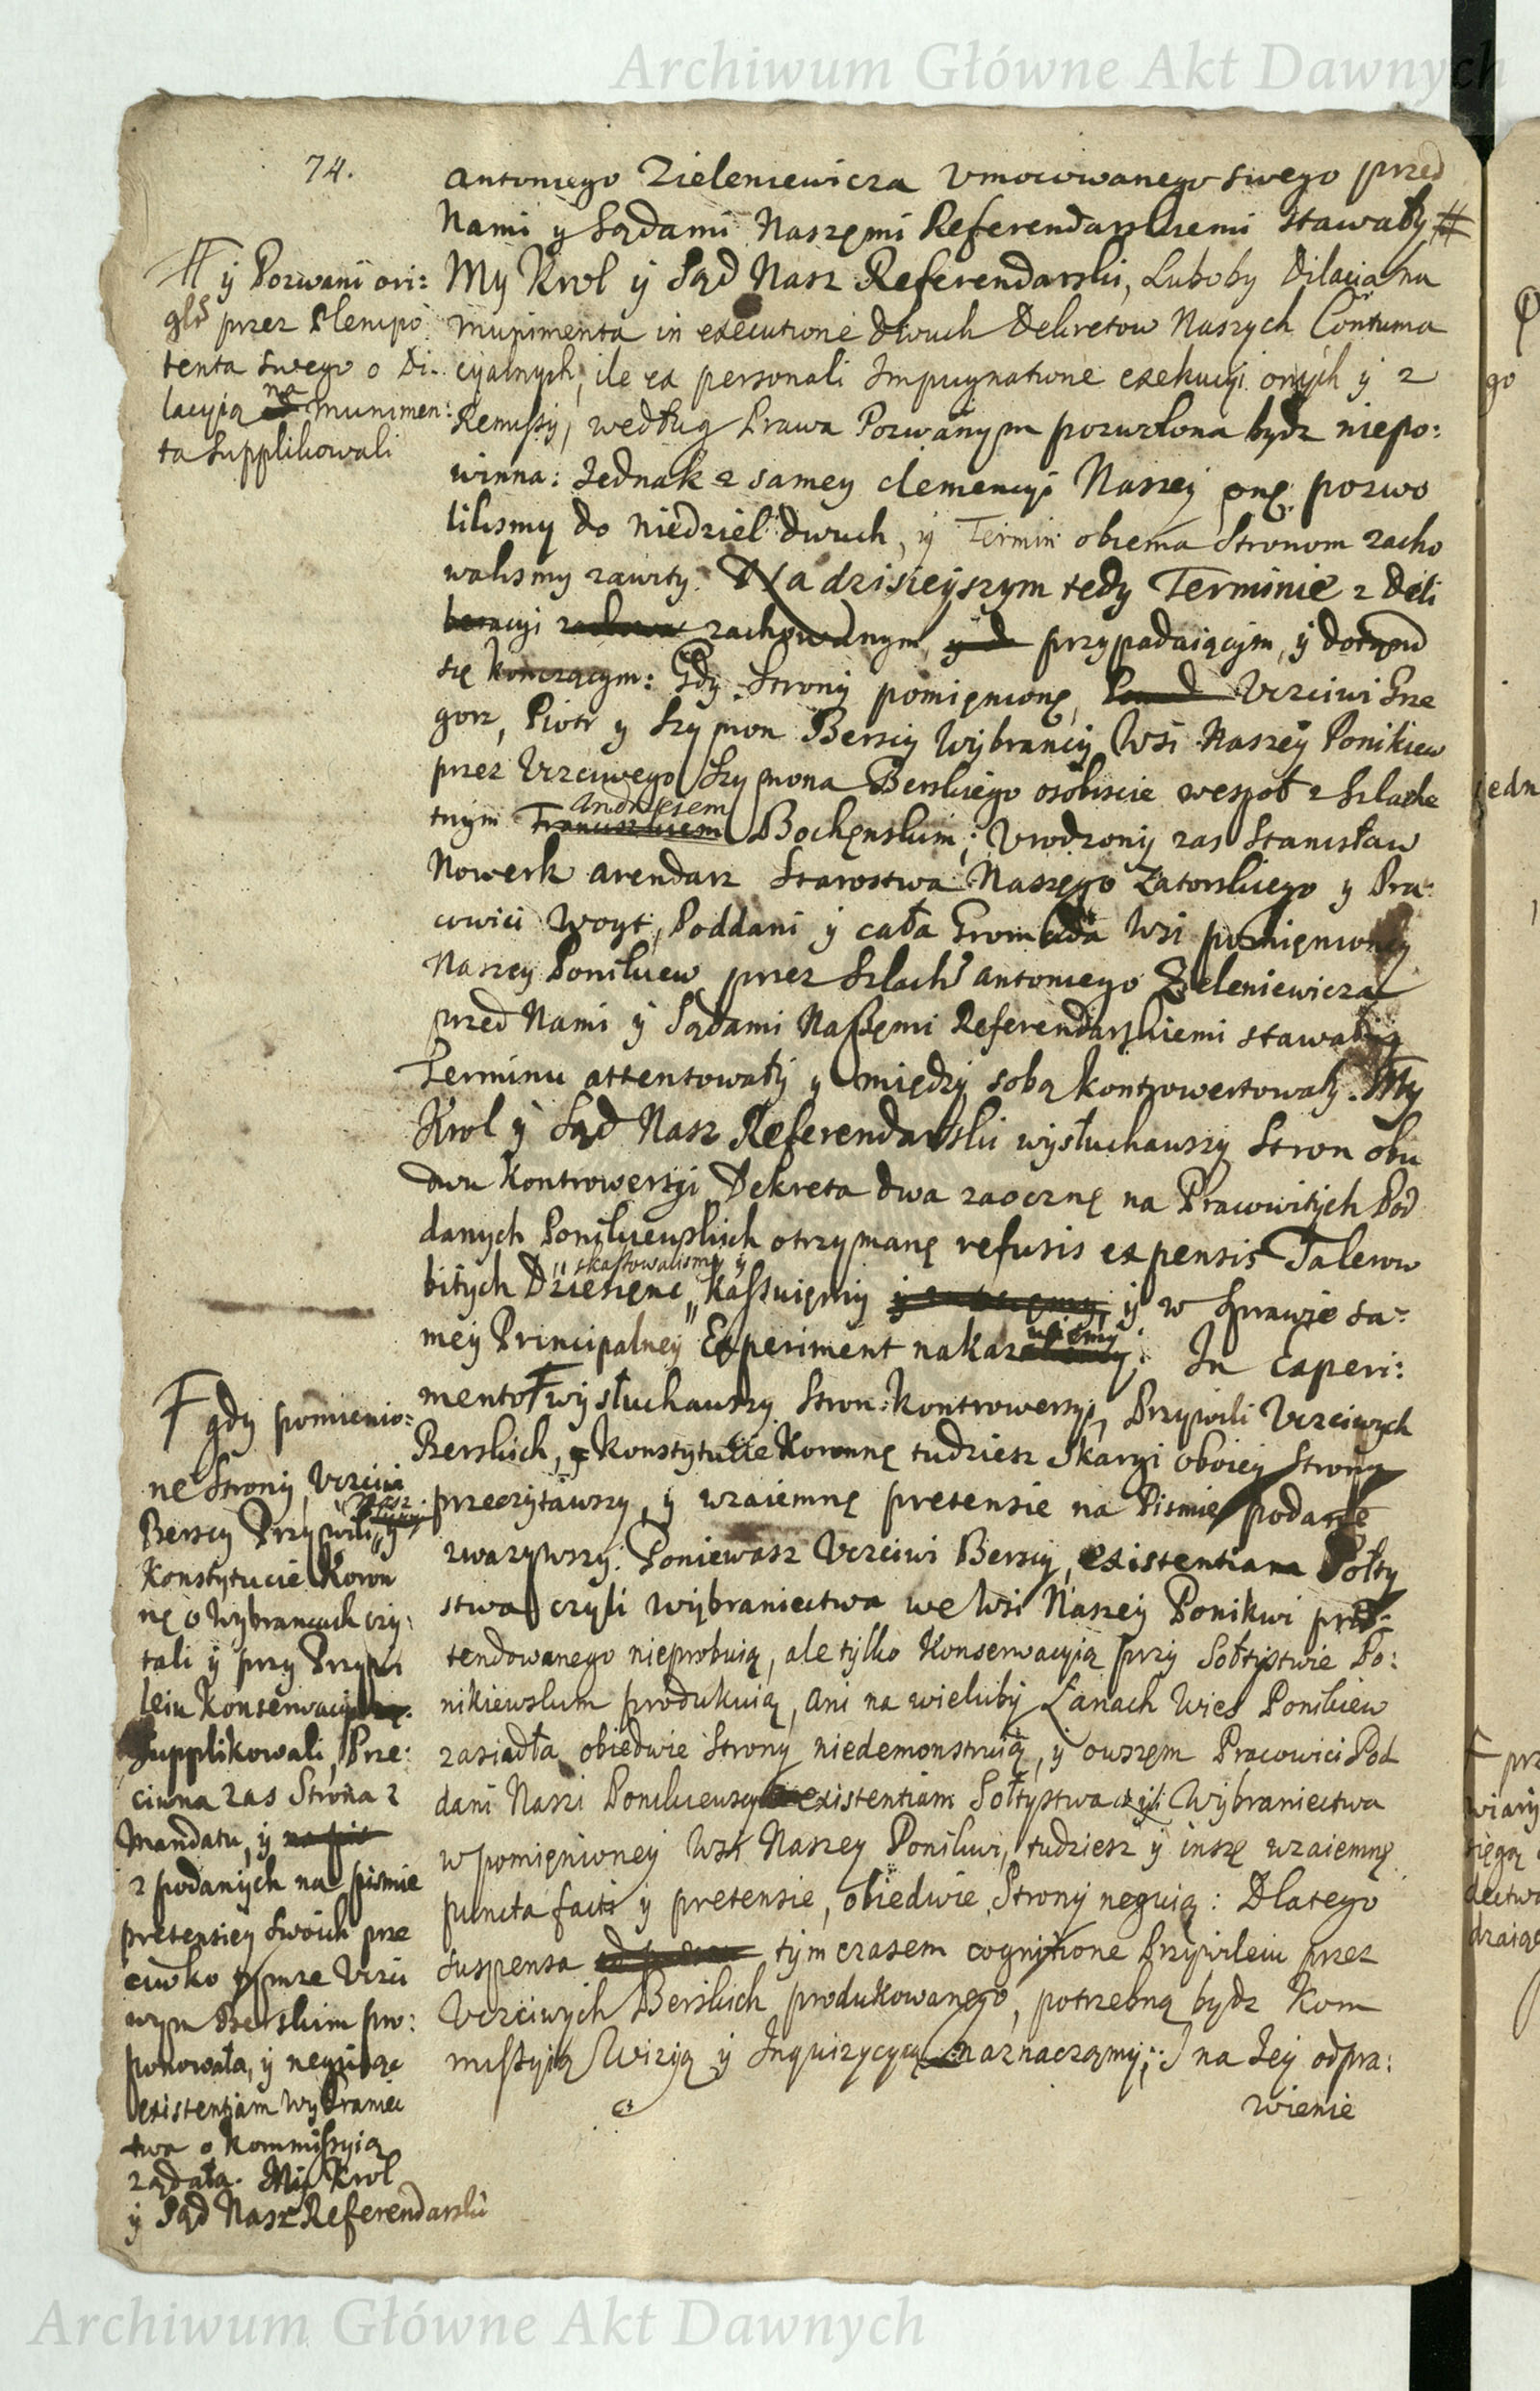 Archiwum Główne Akt Dawnych
74.
Antoniego Zieleniewicza Umocowanego swego przed
Nami y Sądami Naszęmi Referendarskiemi stawały #
# ÿ Pozwani ori:
głs przez Plenipo
tenta swego o Di:
lacyią na munimen:
ta supplikowali
My Krol ÿ Sąd Nasz Referendarski, Luboby Dilacia na
munimenta in executione dwuch Dekretow Naszych Contuma
cyalnych, ile ex personali Impugnatione exekucyi onÿch ÿ z
Remissÿ, według Prawa Pozwanym pozwolona bydz niepo:
winna: Jednak z samey clemencyi Naszeÿ onę pozwo
lilismy do Niedziel dwuch, ÿ Termin obiema Stronom zacho
walismy zawity. Na dzisieÿszym tedy Terminie z Deli
beracyi zachowanym, przypadaiącÿm, ÿ dotąnd
się konczącym: Gdy Strony pomięnionę, Uczciwi Grze
gorz, Piotr y Szymon Berscy Wÿbrancÿ Wsi Naszeÿ Ponikiew
przez Uczciwego Szymona Berskiego osobiscie wespoł z Szlache
tnÿm Franciszkiem Andrzeiem Bochęnskim; Urodzonÿ zas Stanisław
Nowerk arendarz Starostwa Naszęgo Zatorskiego y Pra:
cowici Woyt, Poddani ÿ cała Gromada Wsi pomięnioney
Naszey Ponikiew przez Szlach Antoniego Zieleniewicza
przed Nami ÿ Sądami Naszęmi Referendarskiemi stawałÿ
Terminu attentowałÿ y między sobą kontrowertowały. My
Krol ÿ Sąd Nasz Referendarski wysłuchawszy Stron obu
dwu Kontrowersÿi Dekreta dwa zaocznę na Pracowitÿch Pod
danych Ponikiewskich otrzÿmanę refusis expensis Talerow
bitÿch Dziesięnc skassowalismy ÿ kassuięmÿ ÿ w Sprawie sa:
meÿ Principalneÿ Experiment nakazuięmÿ. In Experi:
mento F wysłuchawszy Stron kontrowersÿi, Przÿwili Uczciwych
Berskich, Konstytucie Koronnę tudziesz Skargi oboieÿ Stronÿ
przeczÿtawszy, ÿ wzaiemnę pretensie na Pismie podanę
zwazÿwszÿ: Poniewasz Uczciwi Berscÿ, existentiam Sołty
stwa czyli wÿbraniectwa we Wsi Naszeÿ Ponikwi prae:
tendowanego nieprobuią, ale tÿlko Konserwacyią przÿ Sołtystwie Po:
nikiewskim produkuią, ani na wielubÿ Łanach Wies Ponikiew
zasiadła obiedwie Stronÿ niedemonstruią, ÿ owszęm Pracowici Pod
dani Nasi Ponikiewscy existentiam Sołtÿstwa czÿli Wÿbraniectwa
w pomięnioneÿ Wsi Naszey Ponikwi, tudziesz ÿ inszę wzaiemnę
puncta facti ÿ pretensie, obiedwie Stronÿ neguią: Dlatego
suspensa tÿm czasem cognitione Przÿwileiu przez
Uczciwÿch Berskich produkowanego, potrzebną bÿdz Kom
missÿią Wizią ÿ Inquizycyią naznaczamÿ; I na Jeÿ odpra:
wienie
F gdy pomienio:
nę Stronÿ, Uczciwi
Berscy Przÿwili y
Konstytucie Koron
nę o Wybrancach czy:
tali ÿ przy Przÿwi
leiu Konserwacyią
supplikowali, Prze:
ciwna zas Strona z
Mandatu, ÿ na pis
z podanÿch na pismie
pretensieÿ swoich prze
ciwko tymze Uczci
wym Berskim pro:
ponowała, ÿ neguiąc
existentiam Wybraniec
twa o Kommissyią
ządała. Mÿ Krol
ÿ Sąd Nasz Referendarski
Archiwum Główne Akt Dawnych